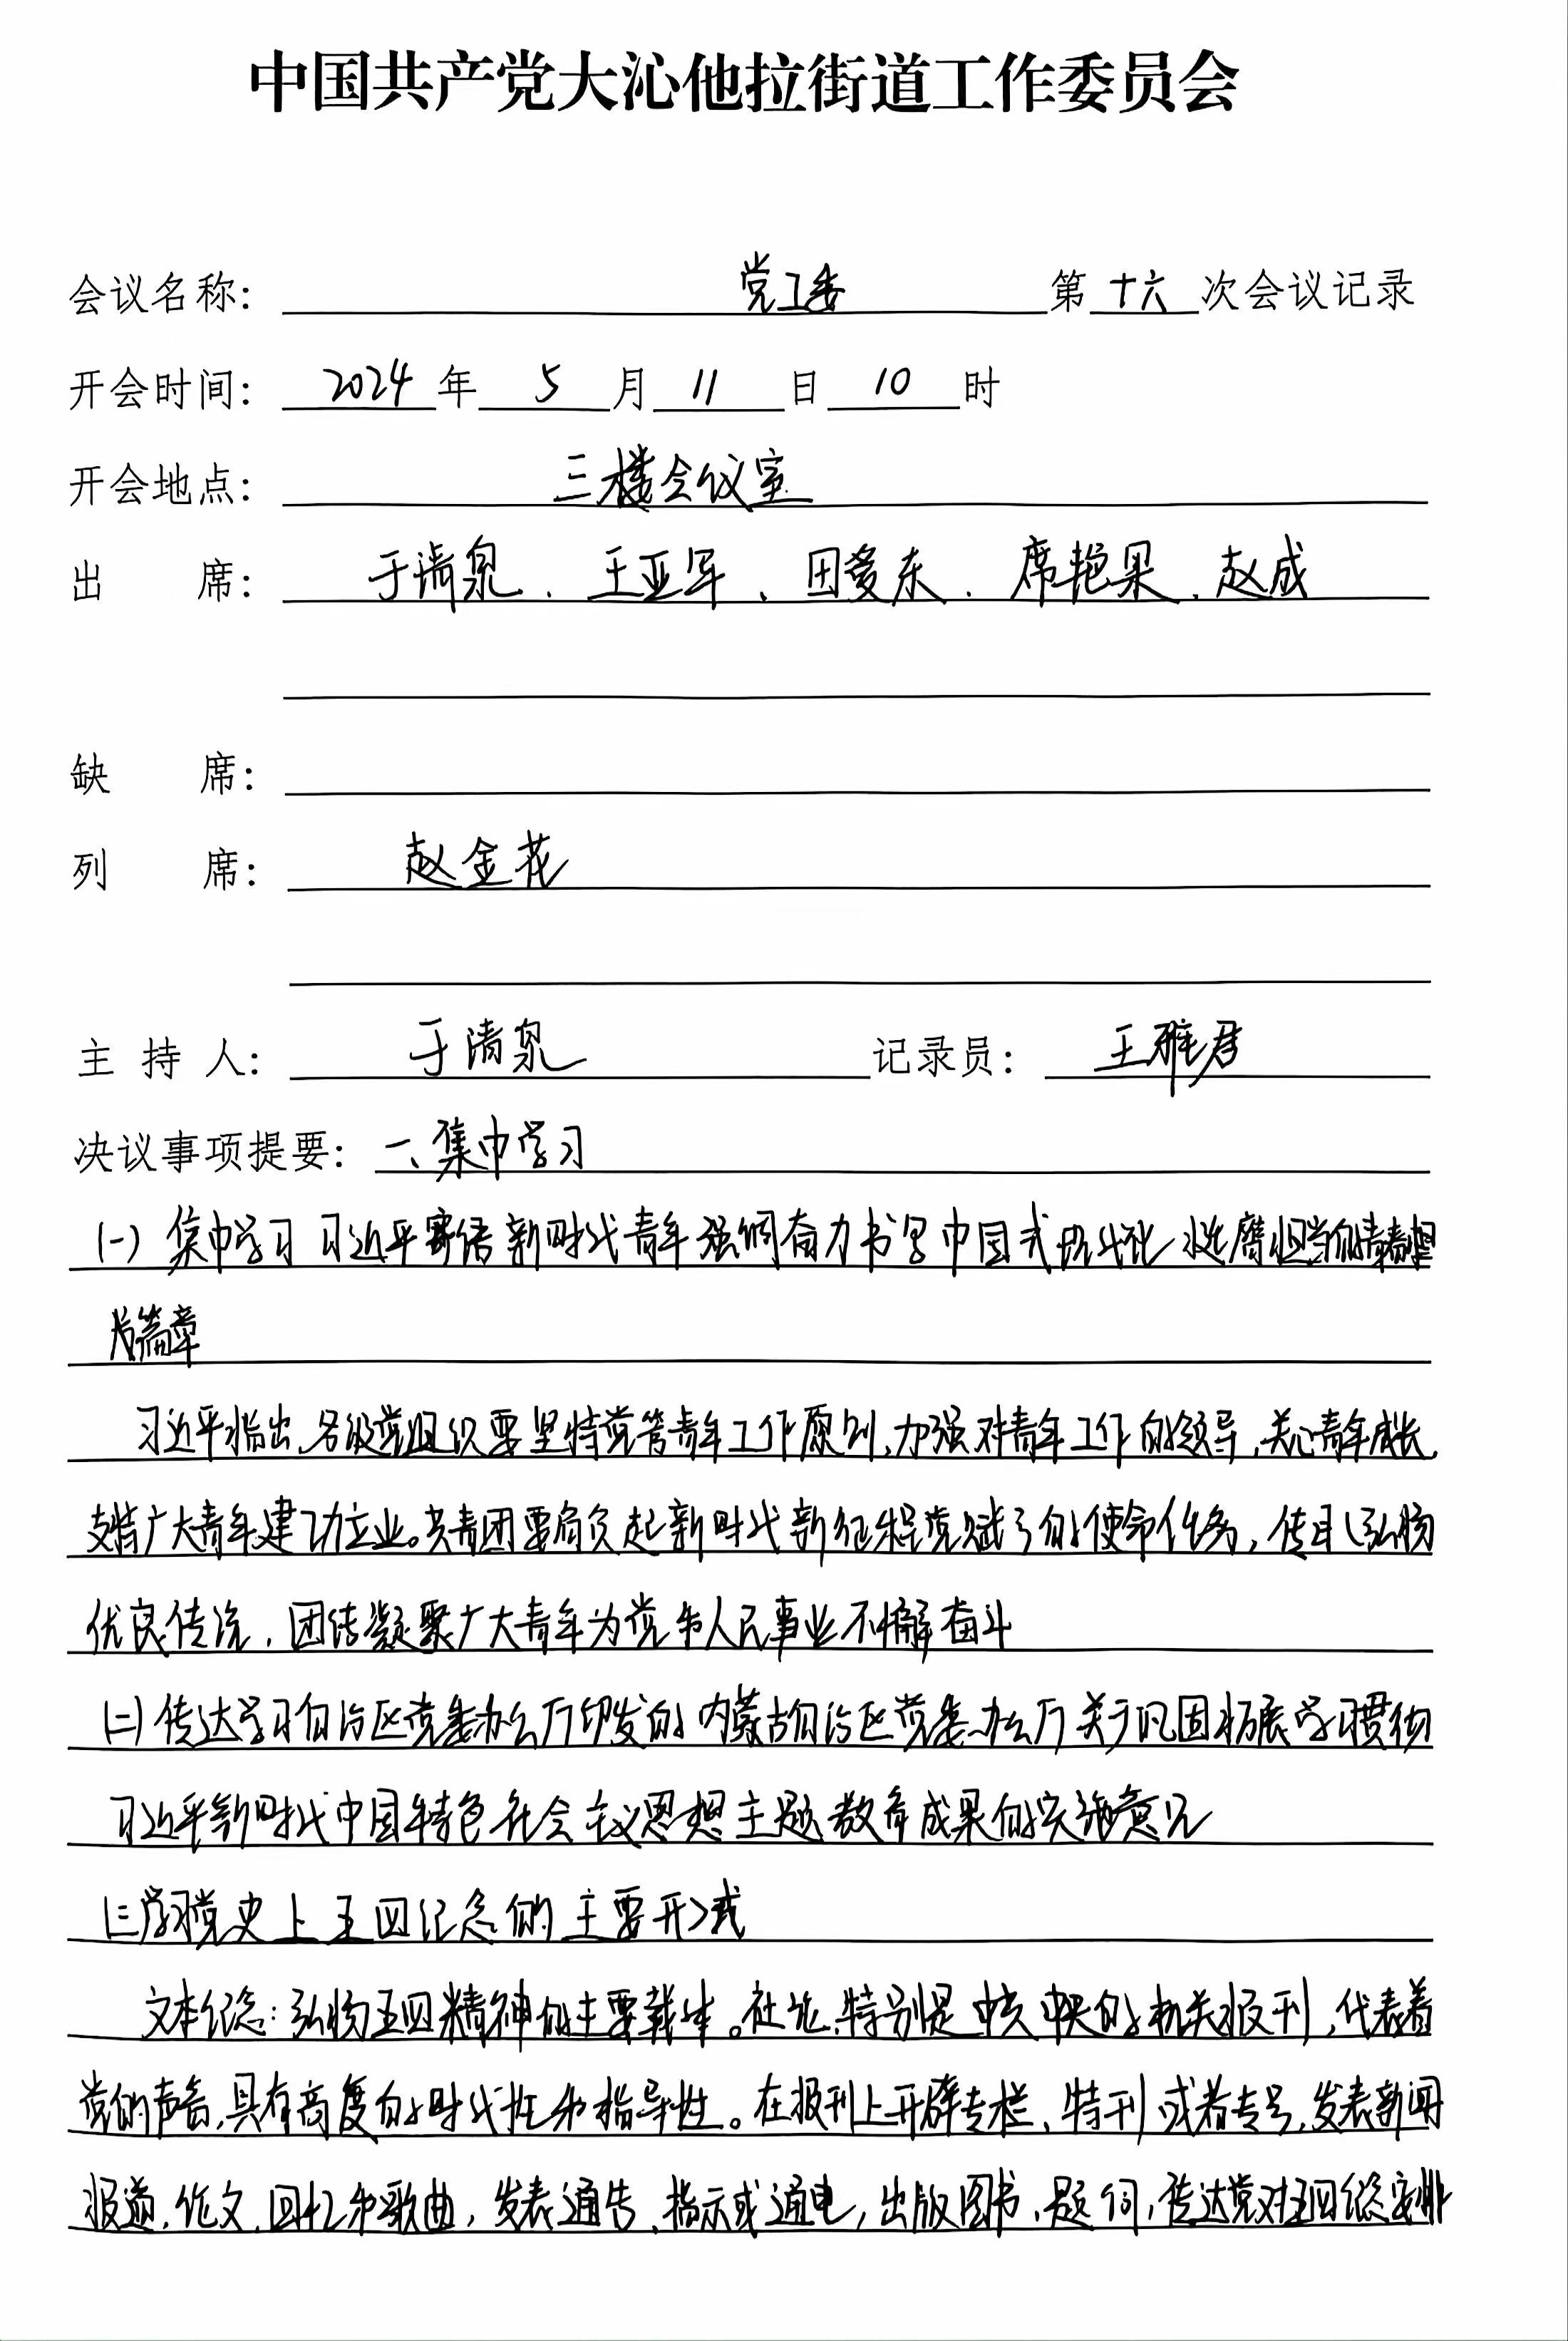 中国共产党大沁他拉街道工作委员会
会议名称: 党工委 第 十六 次会议记录
开会时间: 2024 年 5 月 11 日 10 时
开会地点: 三楼会议室
出 席: 于清泉、王亚军、田爱东、席艳果、赵成
缺 席:
列 席: 赵金花
主 持 人: 于清泉 记录员: 王雅君
决议事项提要: 一、集中学习
(一) 集中学习 习近平寄语新时代青年强调奋力书写中国式现代化 挺膺担当的青春
篇章
习近平指出,各级党组织要坚持党管青年工作原则,加强对青年工作的领导,关心青年成长,
支持广大青年建功立业。共青团要肩负起新时代新征程党赋予的使命任务,传承弘扬
优良传统,团结凝聚广大青年为党和人民事业不懈奋斗
(二) 传达学习自治区党委办公厅印发的内蒙古自治区党委办公厅关于巩固拓展学习贯彻
习近平新时代中国特色社会主义思想主题教育成果的实施意见
(三)学习党史上五四纪念的主要形式
文本纪念:弘扬五四精神的主要载体。社论,特别是中共中央的机关报刊,代表着
党的声音,具有高度的时代性和指导性。在报刊上开辟专栏、特刊或者专号,发表新闻
报道,作文,回忆和歌曲,发表通告、指示或通电,出版图书、题词,传达党对五四纪念安排